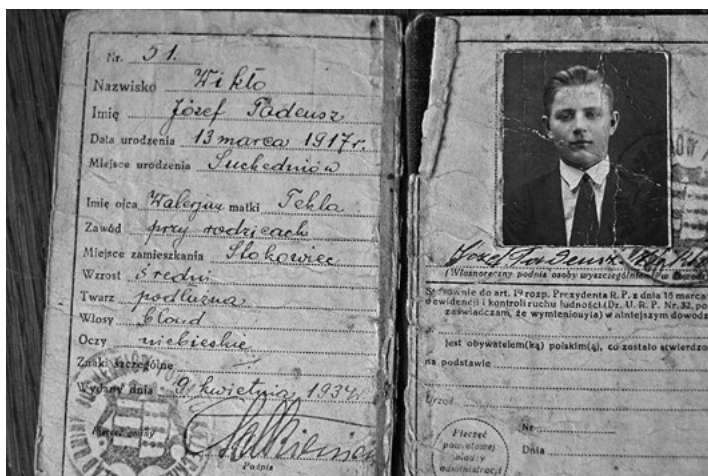 Nr. 51.
Nazwisko Wikło
Imię Józef Tadeusz
Data urodzenia 13 marca 1917 r.
Miejsce urodzenia Suchedniów
Imię ojca Walerjan matki Tekla
Zawód przy rodzicach
Miejsce zamieszkania Stokowiec
Wzrost średni
Twarz podłużna
Włosy blond
Oczy niebieskie
Znaki szczególne
Wydany dnia 9 kwietnia 1934 r.
Pieczęć gminy
Podpis
Józef Tadeusz
(Własnoręczny podpis osoby wyszczególnion w dowod
Stosownie do art. 19 rozp. Prezydenta R. P. z dnia 16 marca
o ewidencji i kontroli ruchu ludności (Dz. U. R. P. Nr. 32, po
zaświadczam, że wymieniony(a) w niniejszym dowodz
jest obywatelem(ką) polskim(ą), co zostało stwierdzo
na podstawie
Urząd
Nr.
Dnia
Pieczęć
powiatowej
władzy
administracji